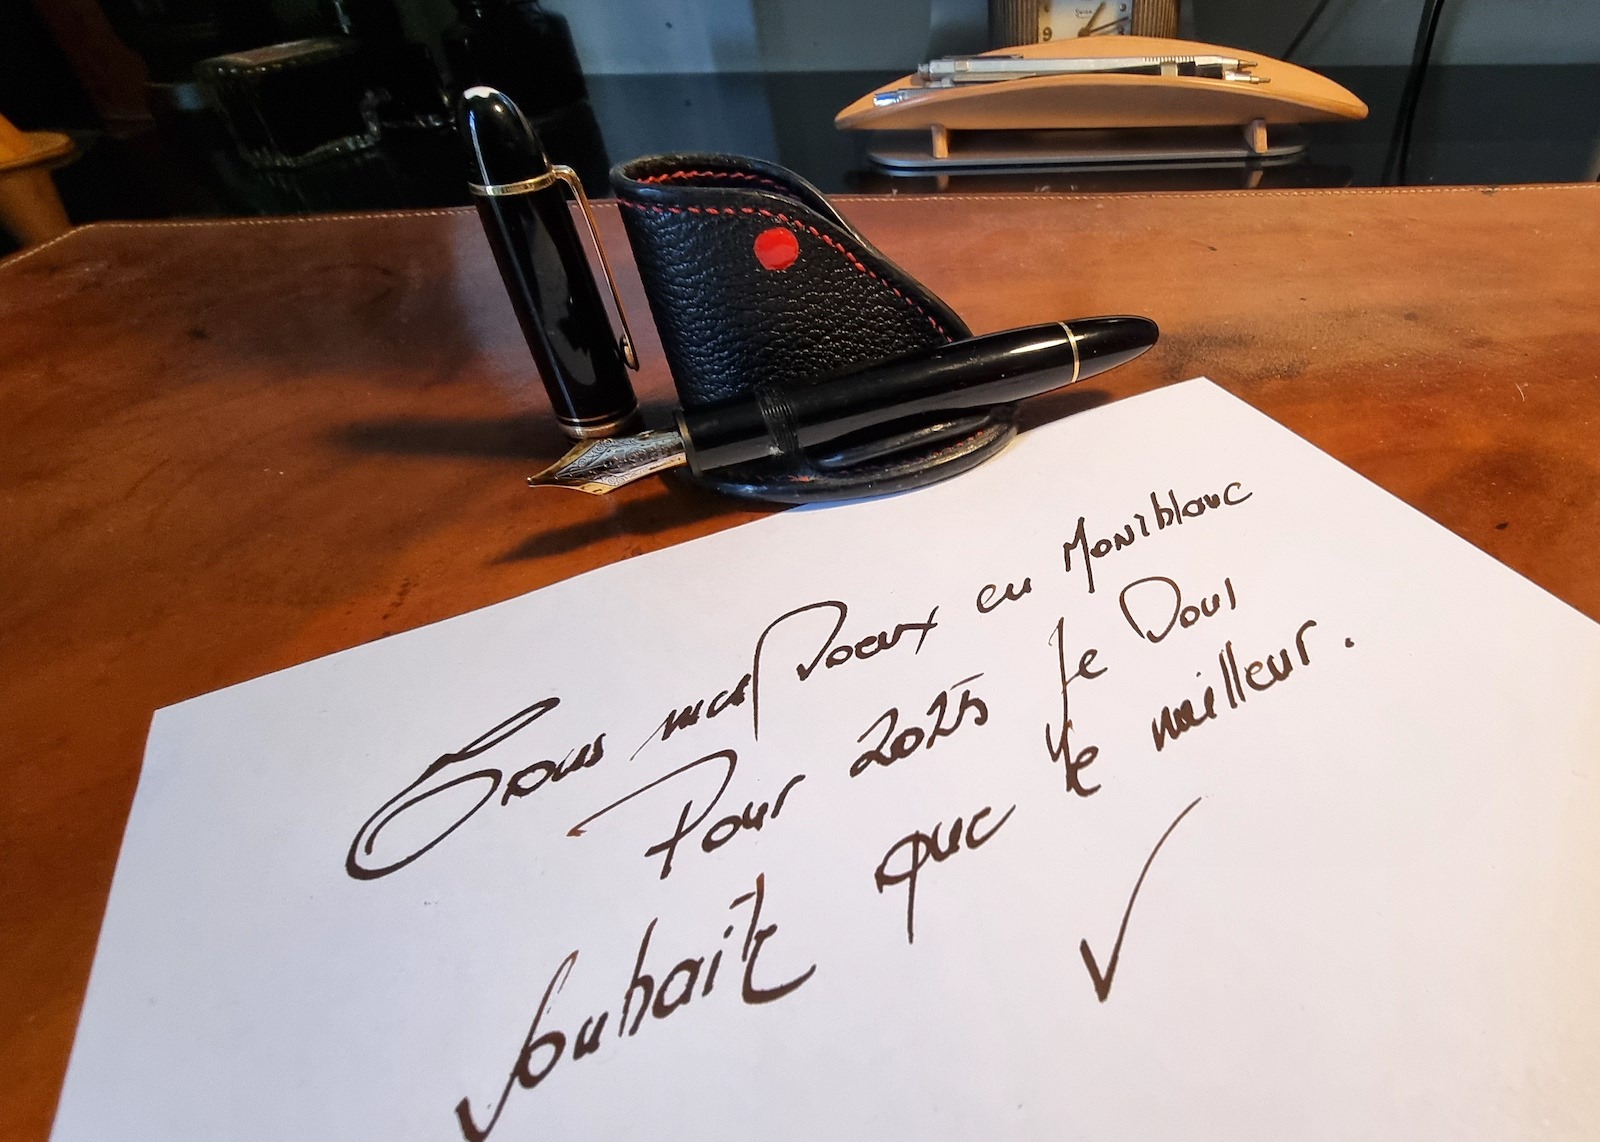 Tous mes Voeux en Montblanc
Pour 2025 Je Vous
souhaite que le meilleur.
9